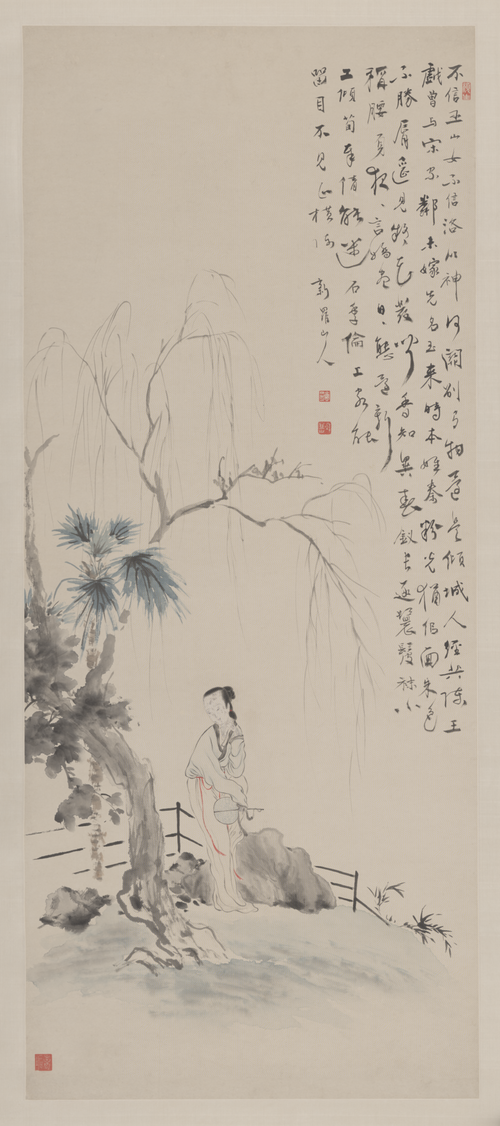 不信巫山女不信洛川神何關別有物還是傾城人經共陳王
戲曾與宋家鄰未嫁先名玉來時本姓秦粉光猶似面朱色
不勝脣遙見疑花發聞香知異春釵長逐鬟髲袜小
稱腰身夜〻言嬌盡日〻態還新
工傾荀奉倩能迷石季倫上客徒
留目不見正橫陳 新羅山人